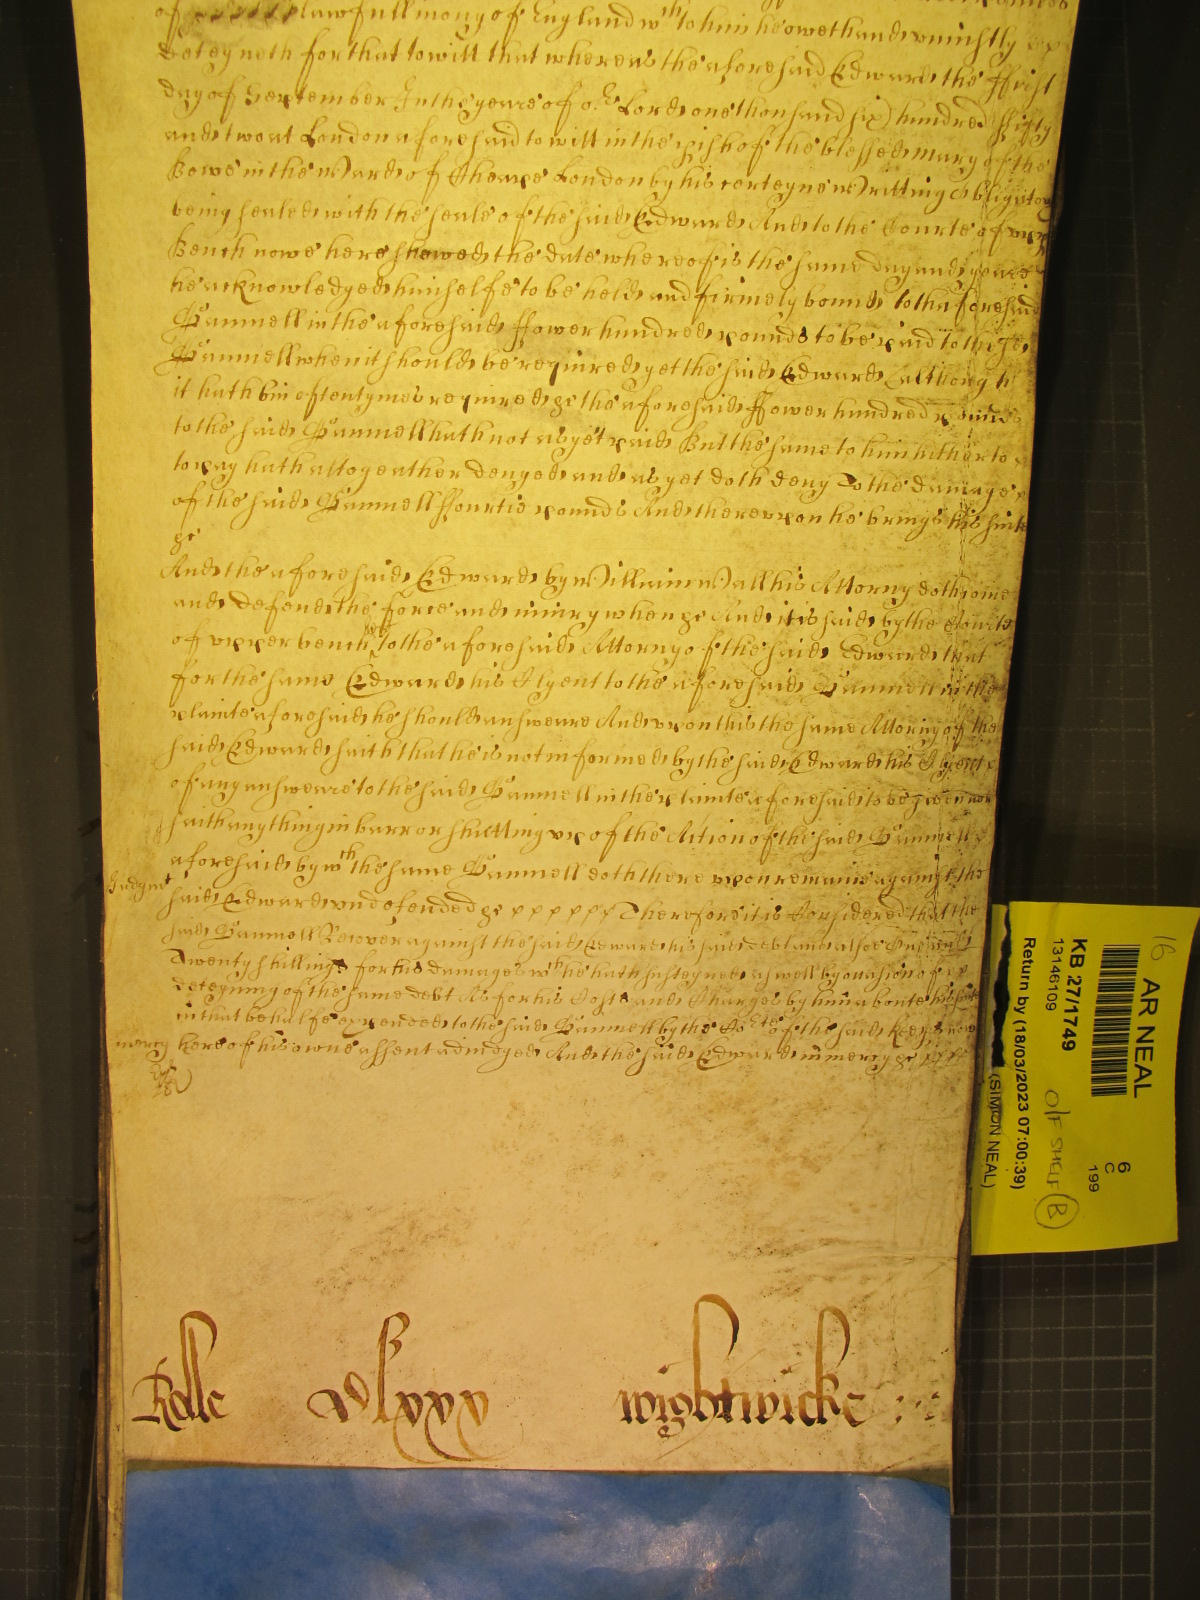 of lawfull mony of England wth to him he oweth and uniustly
deteyneth for that to witt that whereas the aforesaid Edward the ffirst
day of September In the yeare of or Lord one thousand six hundred ffifty
and two at London aforesaid to witt in the pish of the blessed mary of the
Bowe in the Ward of Cheape London by his certeyne Writting obligatory
being sealed with the seale of the said Edward And to the Courte of upp
Bench nowe here showed the date whereof is the same day and yeare
he acknowledged himselfe to be held and firmely bound to tha foresaid
Samuell in the aforesaid ffower hundred pounds to be paid to the sd
Samuell when it should be required yet the said Edward (although
it hath bin oftentymes required &c the aforesaid ffower hundred pounds
to the said Samuell hath not as yet paid But the same to him hitherto
to pay hath altogeather denyed and as yet doth deny To the damage
of the said Samuell ffourtie pounds And thereupon he brings his suite
&c
And the aforesaid Edward by William Wall his Attorny doth come
and defend the force and iniury when &c And it is said by the Courte
of upper bench here to the aforesaid Attorny of the said Edward that
for the same Edward his Clyent to the aforesaid Samuell in the
plainte aforesaid he should answeare And upon this the same Attorny of the
said Edward saith that he is not informed by the said Edward his Clyent
of any answeare to the said Samuell in the plainte aforesaid to be given nor
saith any thing in barr or shutting up of the Action of the said Samuell
aforesaid by wth the same Samuell doth there upon remaine against the
Judgmt said Edward undefended &c Therefore it is Considered that the
said Samuell Recover against the said Edward his said debt and alsoe
Twenty shillings for his damages wh he hath susteyned as well by occasion of
deteyning of the same debt As for his Costs and Charges by him aboute his suite
in that behalfe expended to the said Samuell by the of the said now
mercy here of his owne assent adiudged And the said Edward in mercy &c
Rolle Dlxxx Wightwicke
16
AR NEAL
KB 27/1749
13146109
Return by (18/03/2023 07:00:39)
(SIMON NEAL)
O/F SHELF B
6
C
199